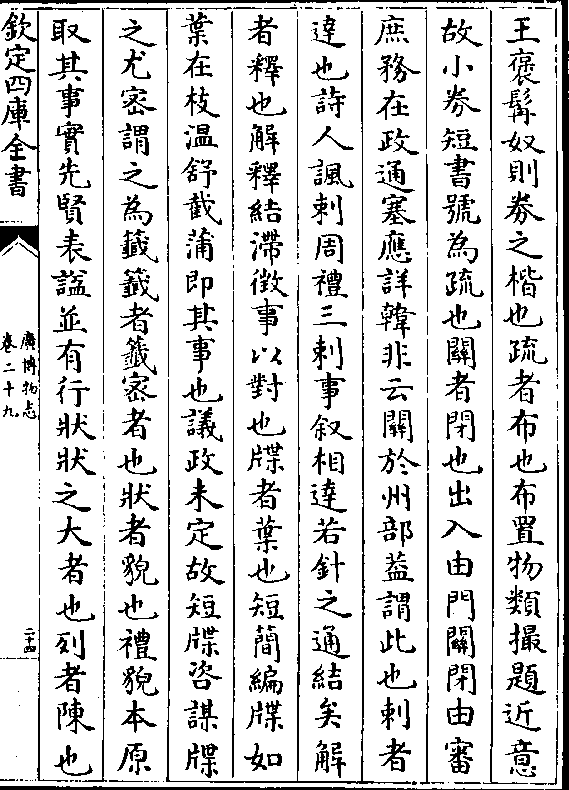 王褒髯奴則券之楷也疏者布也布置物類撮題近意
故小券短書號為疏也關者閉也出入由門關閉由審
庶務在政通塞應詳韓非云關於州部蓋謂此也刺者
達也詩人諷刺周禮三刺事叙相達若針之通結矣解
者釋也解釋結滯徴事以對也牒者葉也短簡編牒如
葉在枝温舒截蒲即其事也議政未定故短牒咨謀牒
之尤宻謂之為籖籖者籖宻者也狀者貌也禮貌本原
取其事實先賢表諡並有行狀狀之大者也列者陳也
欽定四庫全書
廣博物志
卷二十九
二十四